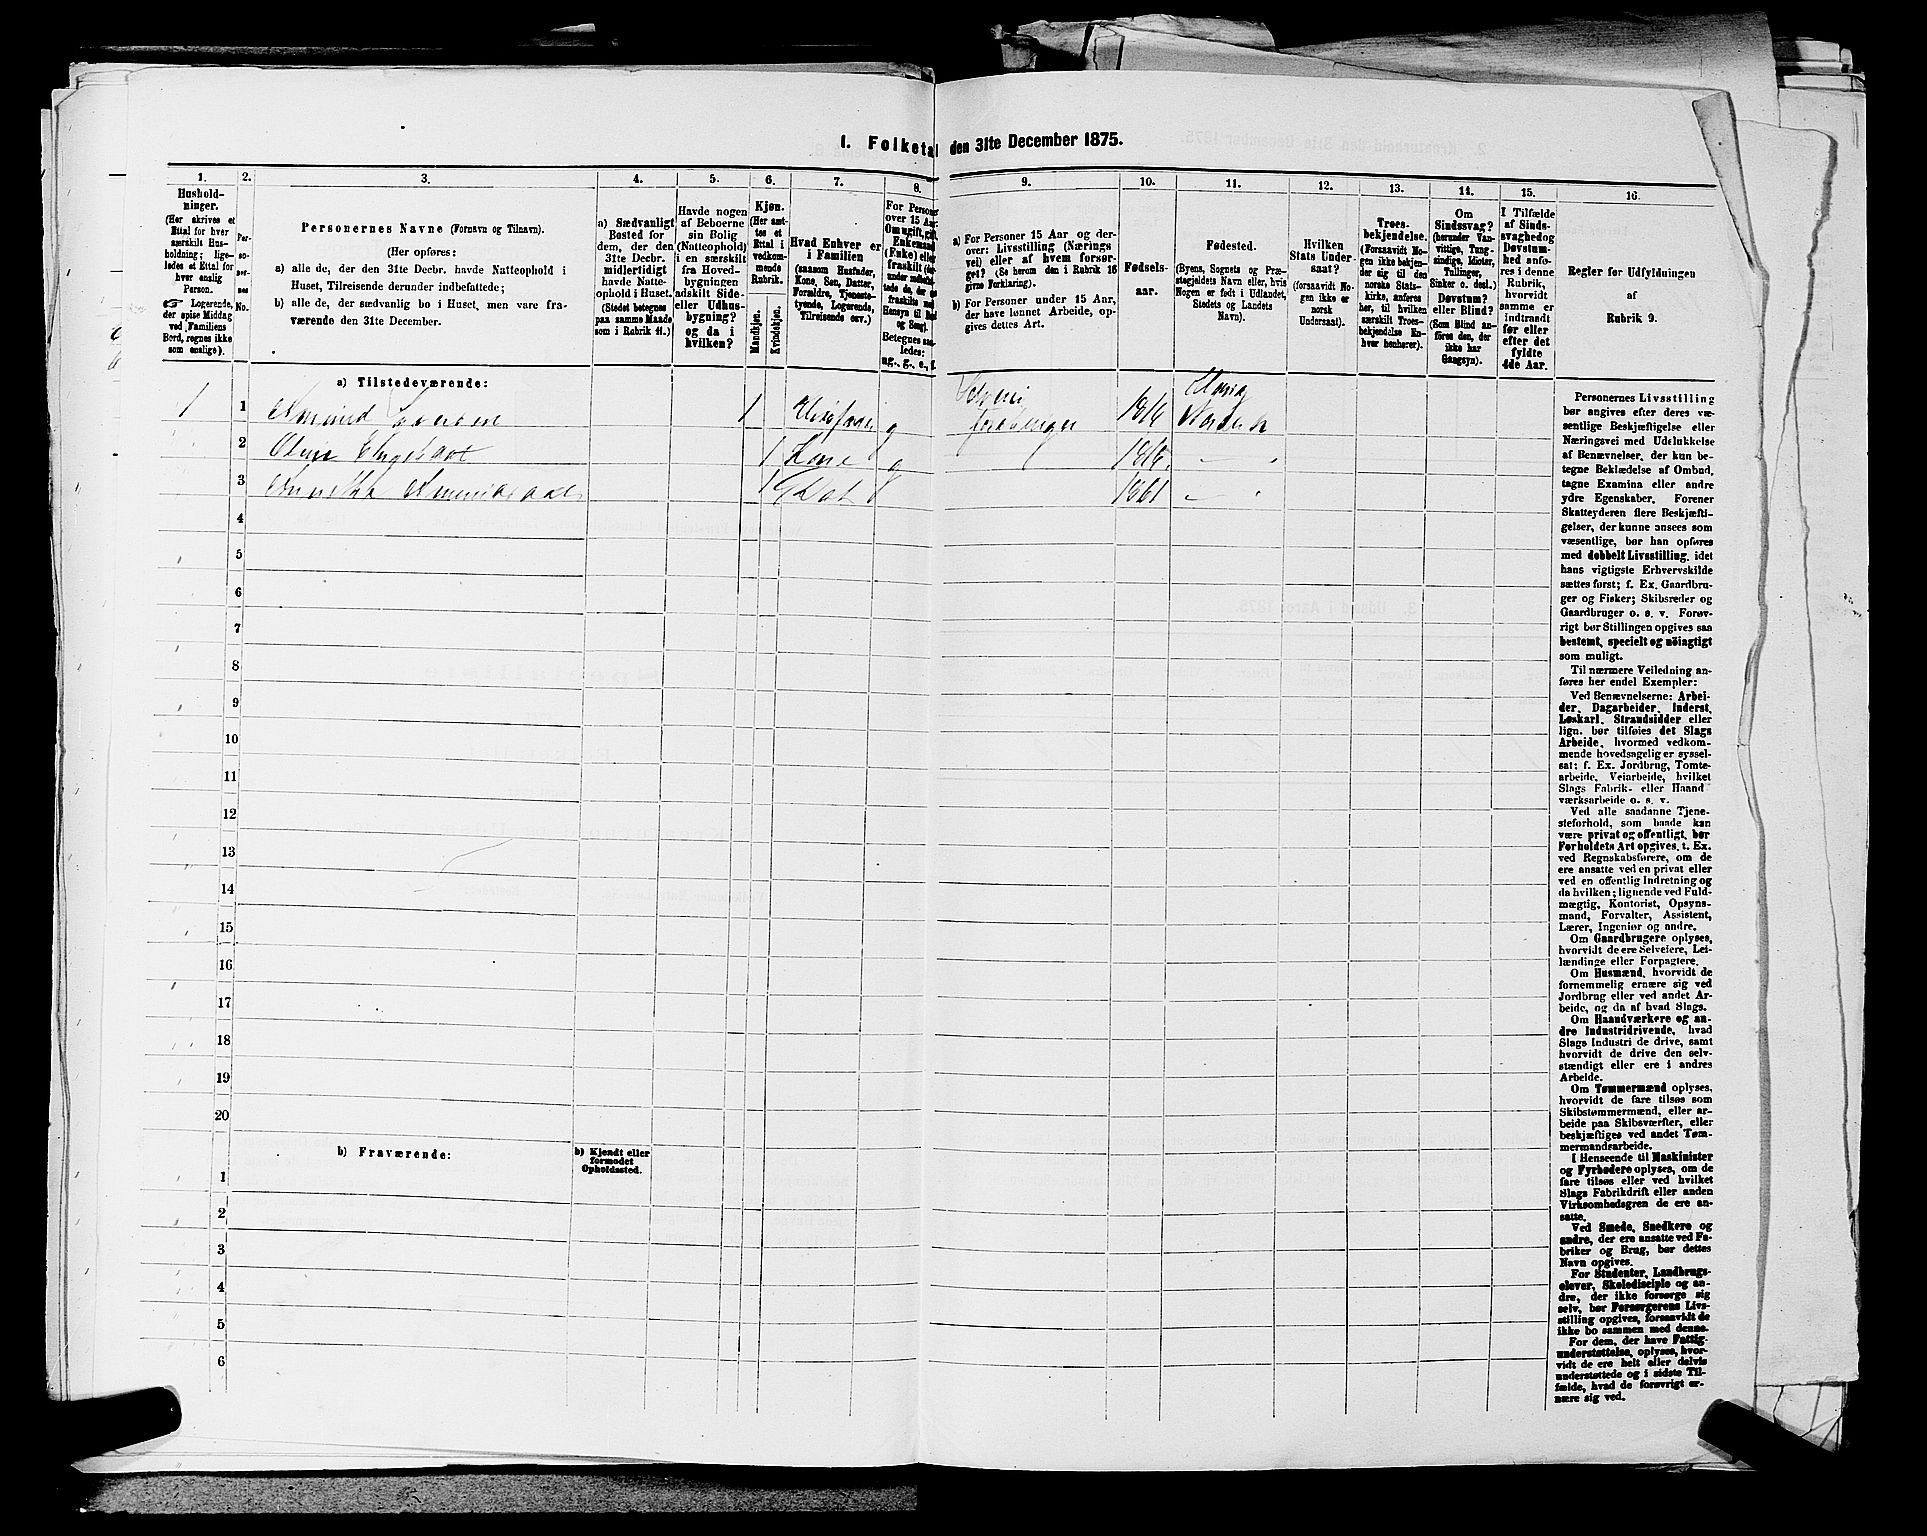 1. Folketal den 31te December 1875.
1.
Hushold-
ninger.
(Her skrives et
Ettal for hver
særskilt Hus-
holdning; lige-
ledes et Ettal for
hver enslig
Person.
Logerende,
der spise Middag
ved Familiens
Bord, regnes ikke
som enslige).
2.
Per-
so-
ner-
nes
No.
3.
Personernes Navne (Fornavn og Tilnavn).
(Her opføres:
a) alle de, der den 31te Decbr. havde Natteophold i
Huset, Tilreisende derunder indbefattede;
b) alle de, der sædvanlig bo i Huset, men vare fra-
værende den 31te December.
4.
a) Sædvanligt
Bosted for
dem, der den
31te Decbr.
midlertidigt
havde Natte-
ophold i Huset.
(Stedet betegnes
paa samme Maade
som i Rubrik 11.)
5.
Havde nogen
af Beboerne
sin Bolig
(Natteophold)
i en særskilt
fra Hoved-
bygningen
adskilt Side-
eller Udhus-
bygning?
og da i
hvilken?
6.
Kjøn.
(Her sæt-
tes et
Ettal i
vedkom-
mende
Rubrik.
Mandkjøn.
Kvindekjøn.
7.
Hvad Enhver er
i Familien
(saasom Husfader,
Kone, Søn, Datter,
Forældre, Tjeneste-
tyende, Logerende,
Tilreisende osv.)
8.
For Personer
over 15 Aar:
Om ugift, gift,
Enkemand
(Enke) eller
fraskilt
Betegnes saa-
ledes:
ug., g., e., f.
9.
a) For Personer 15 Aar og der-
over: Livsstilling (Nærings
vei) eller af hvem forsør-
get? (Se herom den i Rubrik 16
givne Forklaring).
b) For Personer under 15 Aar,
der have lønnet Arbeide, op-
gives dettes Art.
10.
Fødsels-
aar.
11.
Fødested.
(Byens, Sognets og Præ-
stegjeldets Navn eller, hvis
Nogen er født i Udlandet,
Stedets og Landets
Navn).
12.
Hvilken
Stats Under-
saat?
(forsaavidt No-
gen ikke er
norsk
Undersaat).
13.
Troes-
bekjendelse.
(Forsaavidt No-
gen ikke bekjen-
der sig til den
norske Stats-
kirke, anføres
her, til hvilken
særskilt Troes-
bekjendelse En-
hver henhører).
14.
Om
Sindssvag?
(herunder Van-
vittige, Tung-
sindige, Idioter,
Tullinger,
Sinker o. desl.)
Døvstum?
eller Blind?
(Som Blind an-
føres den, der
ikke har
Gangsyn).
15.
I Tilfælde
af Sinds-
svaghed og
Døvstum-
hed anfø-
res i denne
Rubrik,
hvorvidt
samme er
indtraadt
før eller
efter det
fyldte
4de Aar.
16.
Regler for Udfyldningen
af
Rubrik 9.
a) Tilstedeværende:
1 1 1 Husfader g Selveie 1816
2 1 Kone g 1816
3 1 Dat 1861
4
5
6
7
8
9
10
11
12
13
14
15
16
17
18
19
20
b) Fraværende:
b) Kjendt eller
formodet
Opholdssted.
1
2
3
4
5
6
Personernes Livsstilling
bør angives efter deres væ-
sentlige Beskjæftigelse eller
Næringsvei med Udelukkelse
af Benævnelser, der kun be-
tegne Beklædelse af Ombud,
tagne Examina eller andre
ydre Egenskaber. Forener
Skatteyderen flere Beskjæfti-
gelser, der kunne ansees som
væsentlige, bør han opføres
med dobbelt Livsstilling, idet
hans vigtigste Erhvervskilde
sættes først; f. Ex. Gaardbru-
ger og Fisker; Skibsreder og
Gaardbruger o. s. v. Forøv-
rigt bør Stillingen opgives saa
bestemt, specielt og nöiagtigt
som muligt.
Til nærmere Veiledning an-
føres her endel Exempler:
Ved Benævnelserne: Arbei-
der, Dagarbeider, Inderst,
Løskarl, Strandsidder eller
lign. bør tilføies det Slags
Arbeide, hvormed vedkom-
mende hovedsagelig er syssel-
sat; f. Ex. Jordbrug, Tomte-
arbeide, Veiarbeide, hvilket
Slags Fabrik- eller Haand
værksarbeide o. s. v.
Ved alle saadanne Tjene-
steforhold, som baade kan
være privat og offentligt, bør
Forholdets Art opgives, t. Ex.
ved Regnskabsførere, om de
ere ansatte ved en privat eller
ved en offentlig Indretning og
da hvilken; lignende ved Fuld-
mægtig, Kontorist, Opsyns-
mand, Forvalter, Assistent,
Lærer, Ingeniør og andre.
Om Gaardbrugere oplyses,
hvorvidt de ere Selveiere, Lei-
lændinge eller Forpagtere.
Om Husmænd, hvorvidt de
fornemmelig ernære sig ved
Jordbrug eller ved andet Ar-
beide, og da af hvad Slags.
Om Haandværkere og an-
dre Industridrivende, hvad
Slags Industri de drive, samt
hvorvidt de drive den selv-
stændigt eller ere i andres
Arbeide.
Om Tømmermænd oplyses,
hvorvidt de fare tilsøs som
Skibstømmermænd, eller ar-
beide paa Skibsværfter, eller
beskjæftiges ved andet Tøm-
mermandsarbeide.
I Henseende til Maskinister
og Fyrbødere oplyses, om de
fare tilsøs eller ved hvilket
Slags Fabrikdrift eller anden
Virksomhedsgren de ere an-
satte.
Ved Smede, Snedkere og
andre, der ere ansatte ved Fa-
briker og Brug, bør dettes
Navn opgives.
For Studenter, Landbrugs-
elever, Skoledisciple og an-
dre, der ikke forsørge sig
selv, bør Forsørgerens Livs-
stilling opgives, forsaavidt de
ikke bo sammen med denne.
For dem, der have Fattig-
understøttelse, oplyses, hvor-
vidt de ere helt eller delvis
understøttede og i sidste Til-
fælde, hvad de forøvrigt er-
nære sig ved.